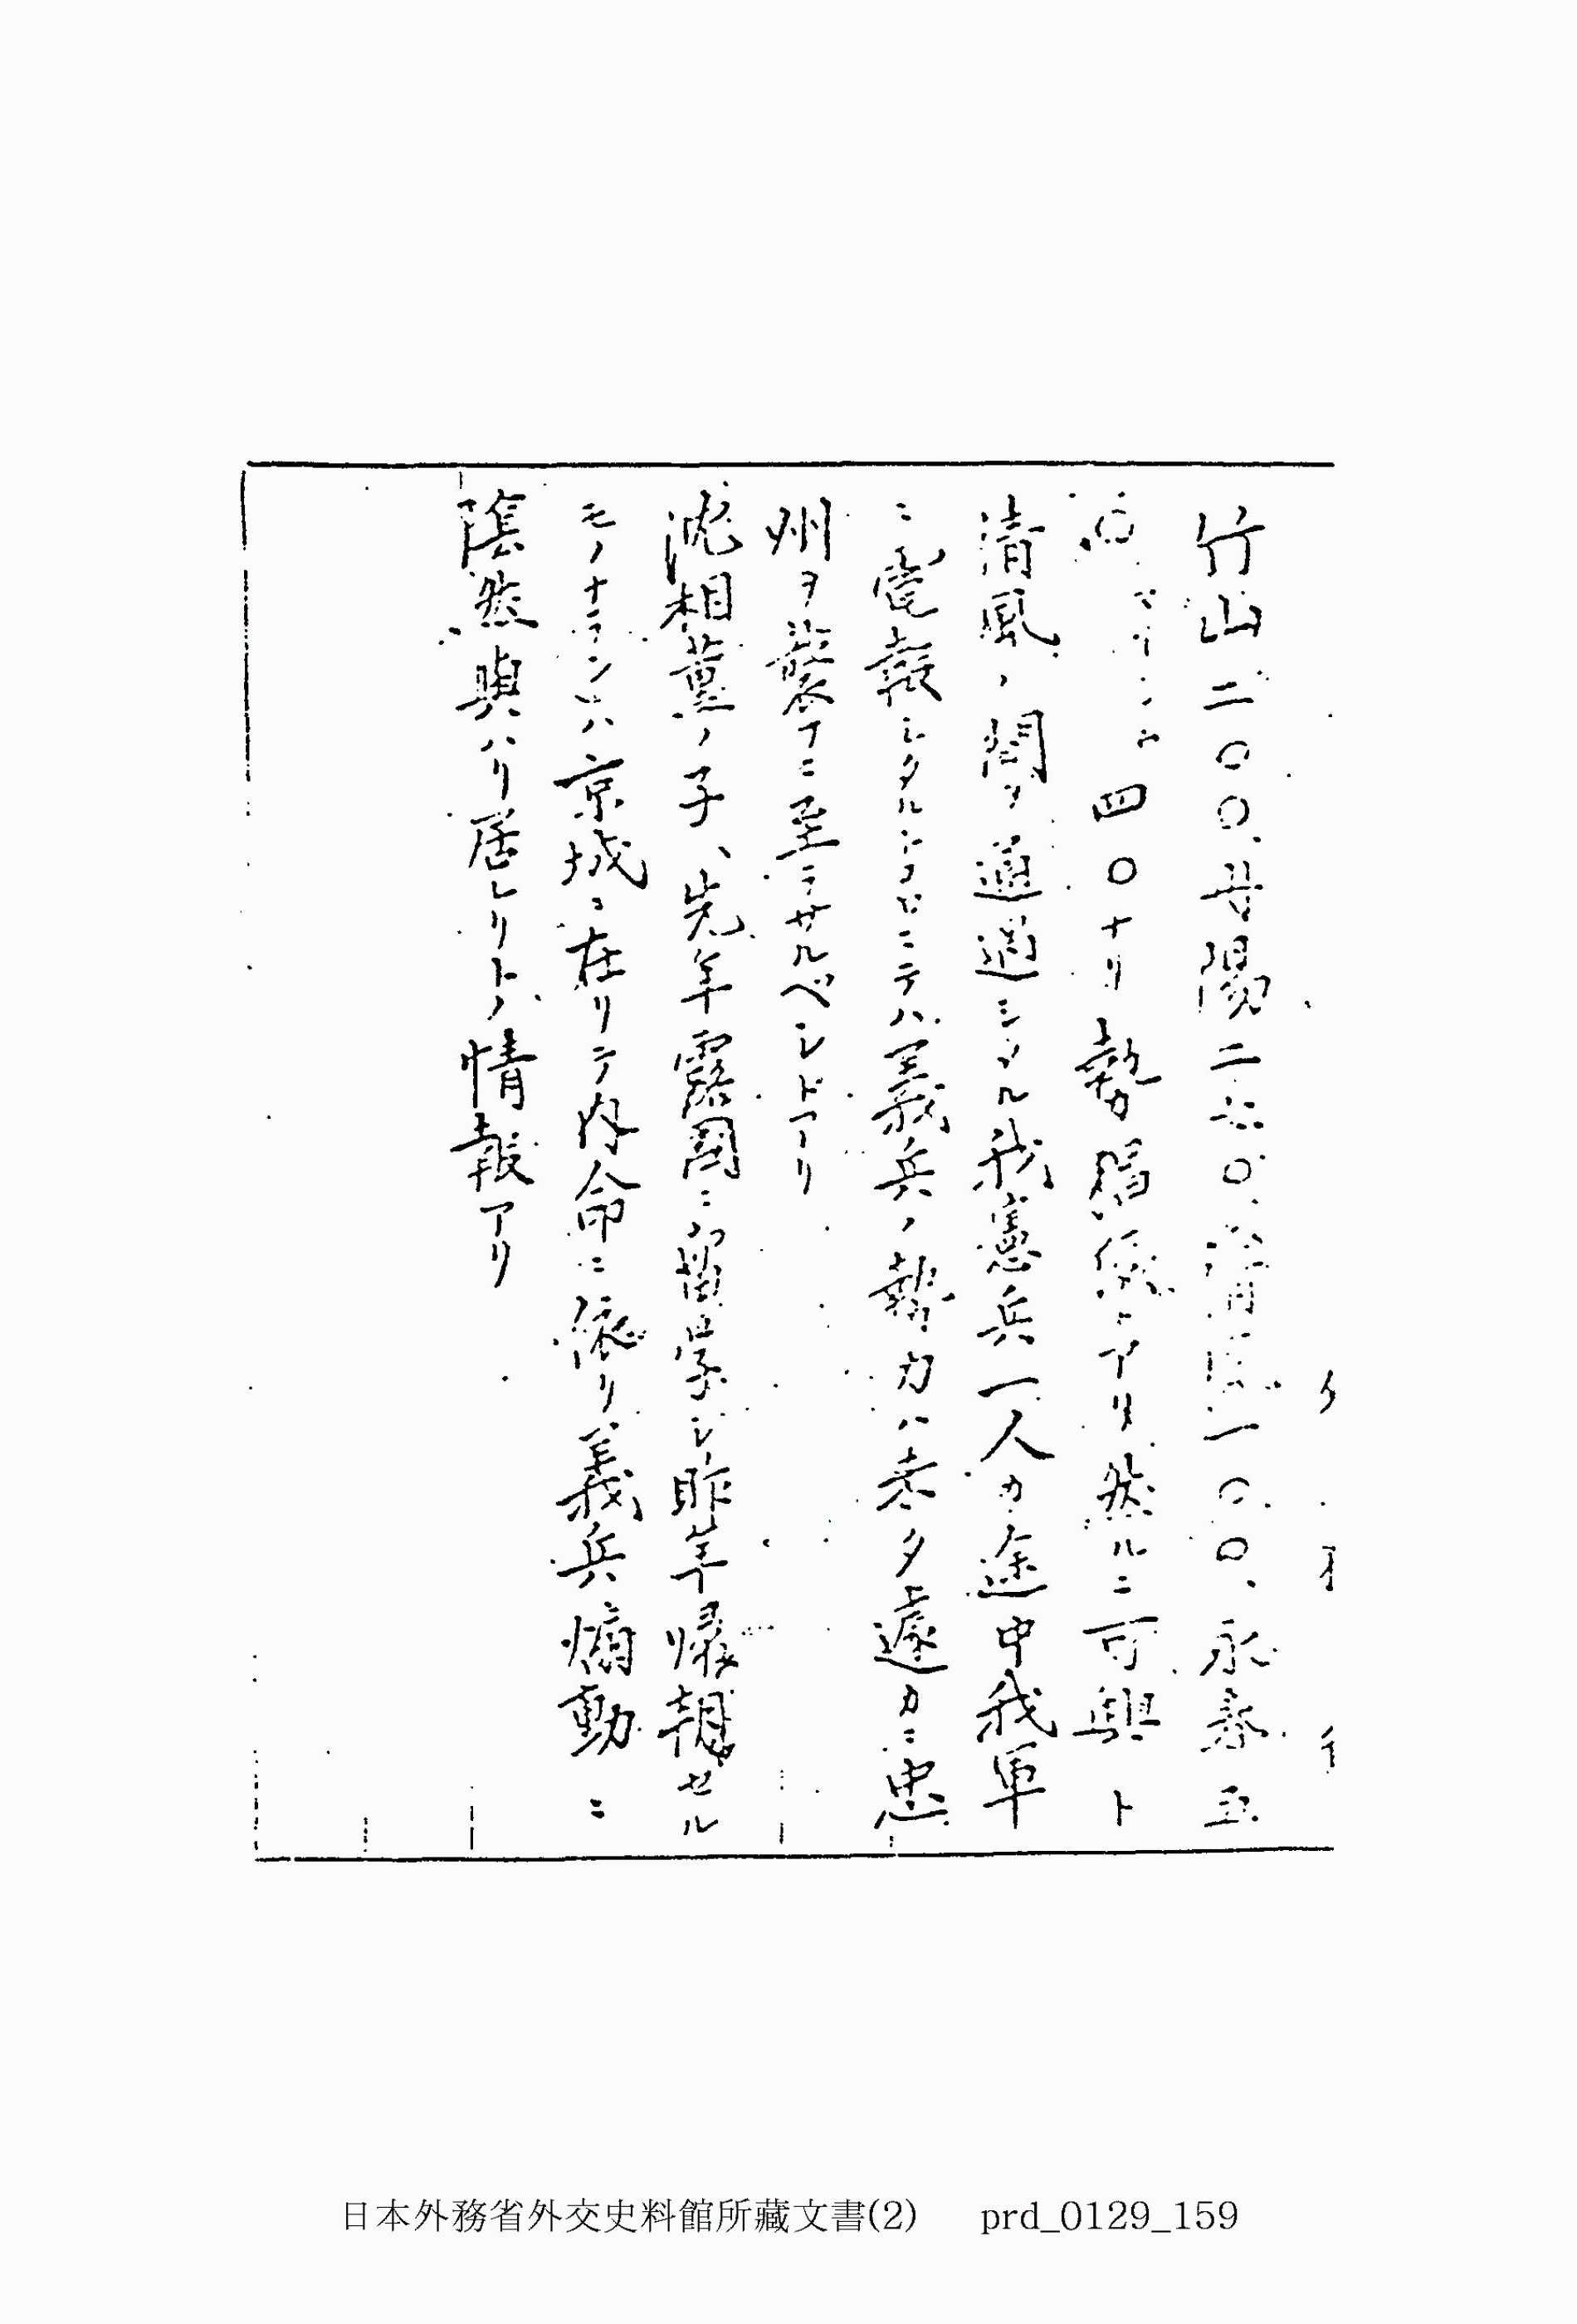 竹山二〇〇、丹陽二六〇、清風一〇〇、永春五
四〇ナリ勢アリ然ルニ可興ト
清風ノ間ヲ通過シタル我憲兵一人カ途中我軍
ニ電報シタルトコロニテハ義兵ノ勢力ハ未タ遽カニ忠
州ヲ襲フニ至ラサルベシトアリ
沈相薫ノ子、先年露国ニ留学シ昨年帰朝セル
モノナランハ京城ニ在リテ内命ニ依リ義兵煽動ニ
陰然與ハリ居レリトノ情報アリ
日本外務省外交史料館所藏文書(2) prd_0129_159